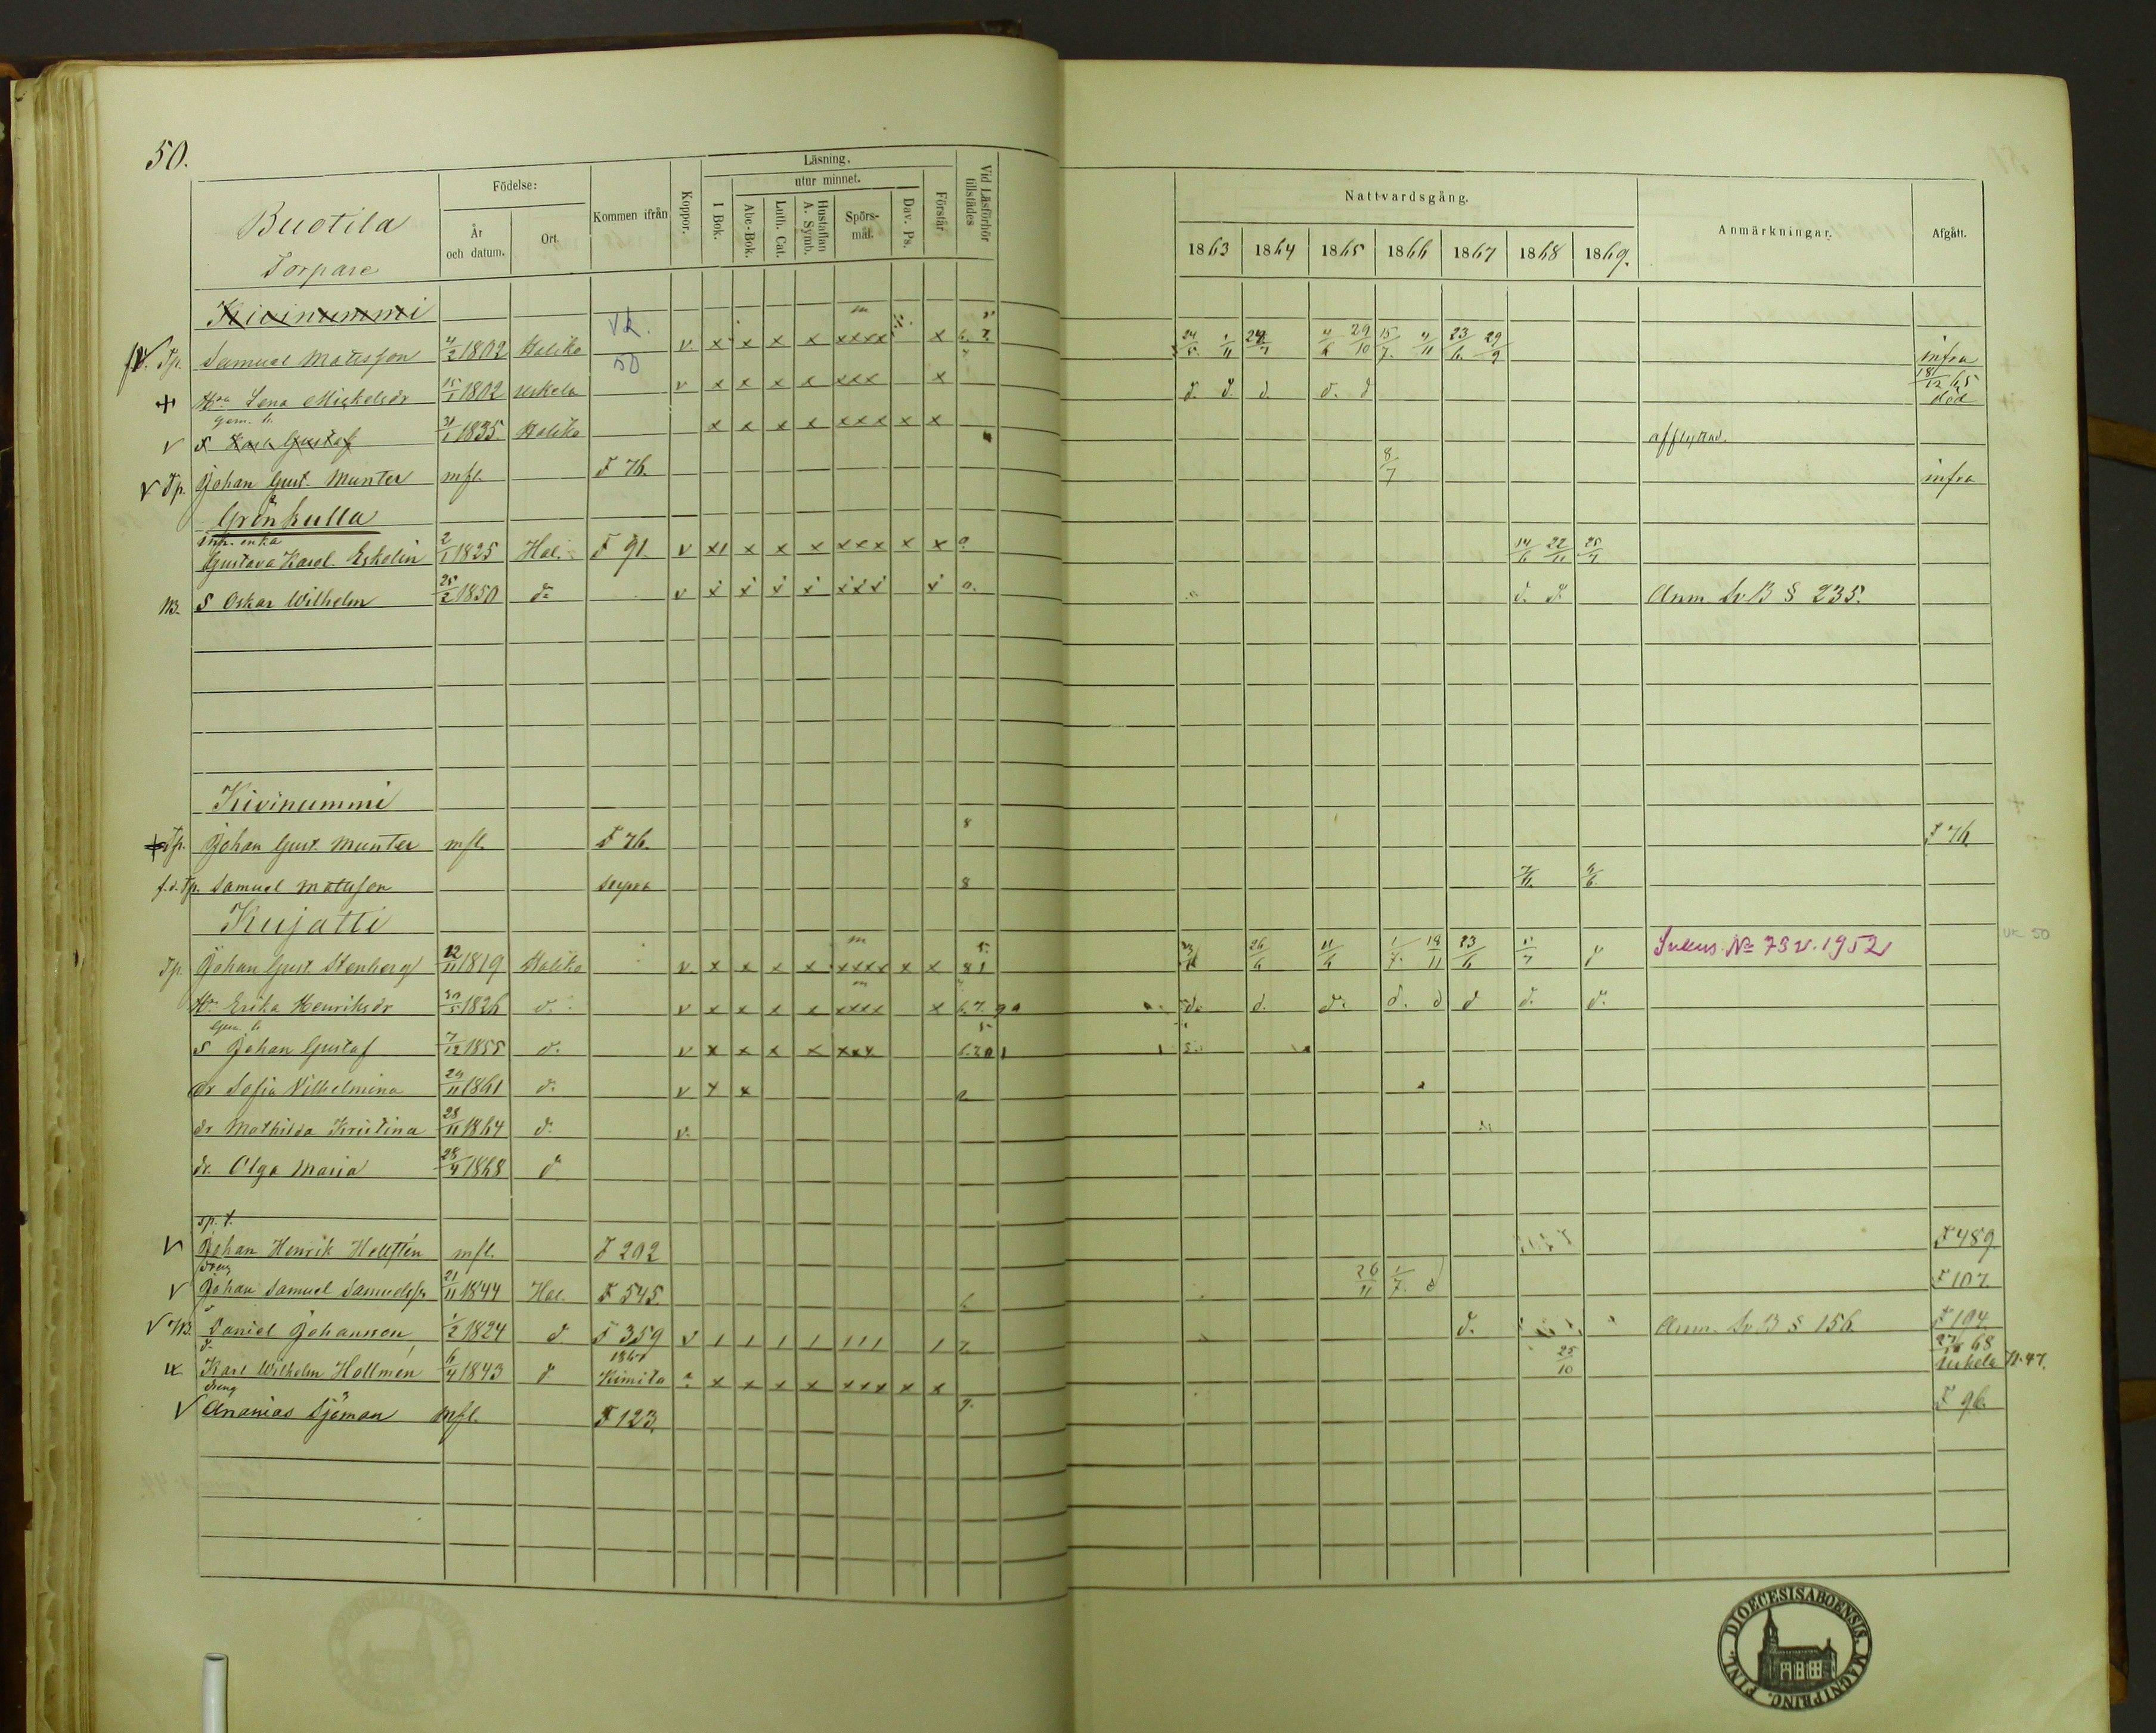 50.
Läsning.
Födelse:
utur minnet.
Nattvardsgång.
Buotila
Kommen ifrån
Koppor.
I Bok.
Abc-Bok.
Luth. Cat.
Hustaflan A. Symb.
Spörs-mål.
Dav. Ps.
Förstår
Vid Läsförhör tillstädes
Anmärkningar.
Afgått.
År och datum.
Ort.
1863 1864 1865 1866 1867 1868 1869.
Torpare
Kivinummi
f.d. Tp. Samuel Matsson 4/2 1802 Haliko v x x x x xxxx x 24/5 1/11 4/6 29/10 15/7. 4/11 23/6 29/9 infra
VK. 50
+ Hu Lena Michelsdr 15/1 1802 Uskela v x x x x xxx x d. d. d. d. d 18/12 65 död
v S Karl Gustaf 1835. Haliko x x x x xxx x x afflyttad.
v Tp. Johan Gust. Munter mfl. F 76. 8/7 infra
Grönkulla
Inh. enka
Gustava Karol. Eskolin 2/1 1825 Hal. F 91. v x x x x xxx x x 14/6 22/11 25/7
S Oskar Wilhelm 25/2 1850 do v d. d. Anm. Sv. B § 235.
Kivinummi
Tp. Johan Gust. Munter mfl. F 76. 8 F 76.
f.d. Tp. Samuel Matsson supra 8
Kujatti
Tp. Johan Gust. Stenberg 12/11 1819 Haliko v x x x x xxxx x x 8 1 26/6 11/6 1/7. 18/11 23/6 d Sukus. No 73 v. 1952
VK 50
Hu Erika Henriksdr 1826 d. v x x x x xxxx x 6.7. d. d. d. d. d d d. d.
S Johan Gustaf 7/12 1855 d. v x x x x xxx
dr Sofia Vilhelmina 24/11 1861 d. v x x
dr Mathilda Kristina 28/11 1864 d. v.
dr. Olga Maria 28/4 1868 d
v Johan Henrik Hellstén mfl. F 202 F 489
dreng
v Johan Samuel Samuelss. 21/11 1844 Hal. F 545. 6. 26/11 1/7. d F 107
v Daniel Johansson 1/2 1824 d F 359 v 1 1 1 1 111 1 7 d. Anm. Sv. B § 156. F 104.
Karl Wilhelm Hollmén 6/4 1843 d Kimito x x x x xxx x x 25/10 68 Uskela N. 47.
dreng
v Ananias Sjöman mfl. F 123. F 96.
DIOECESIS ABOENSIS. MAGNI PRINC. FINL.